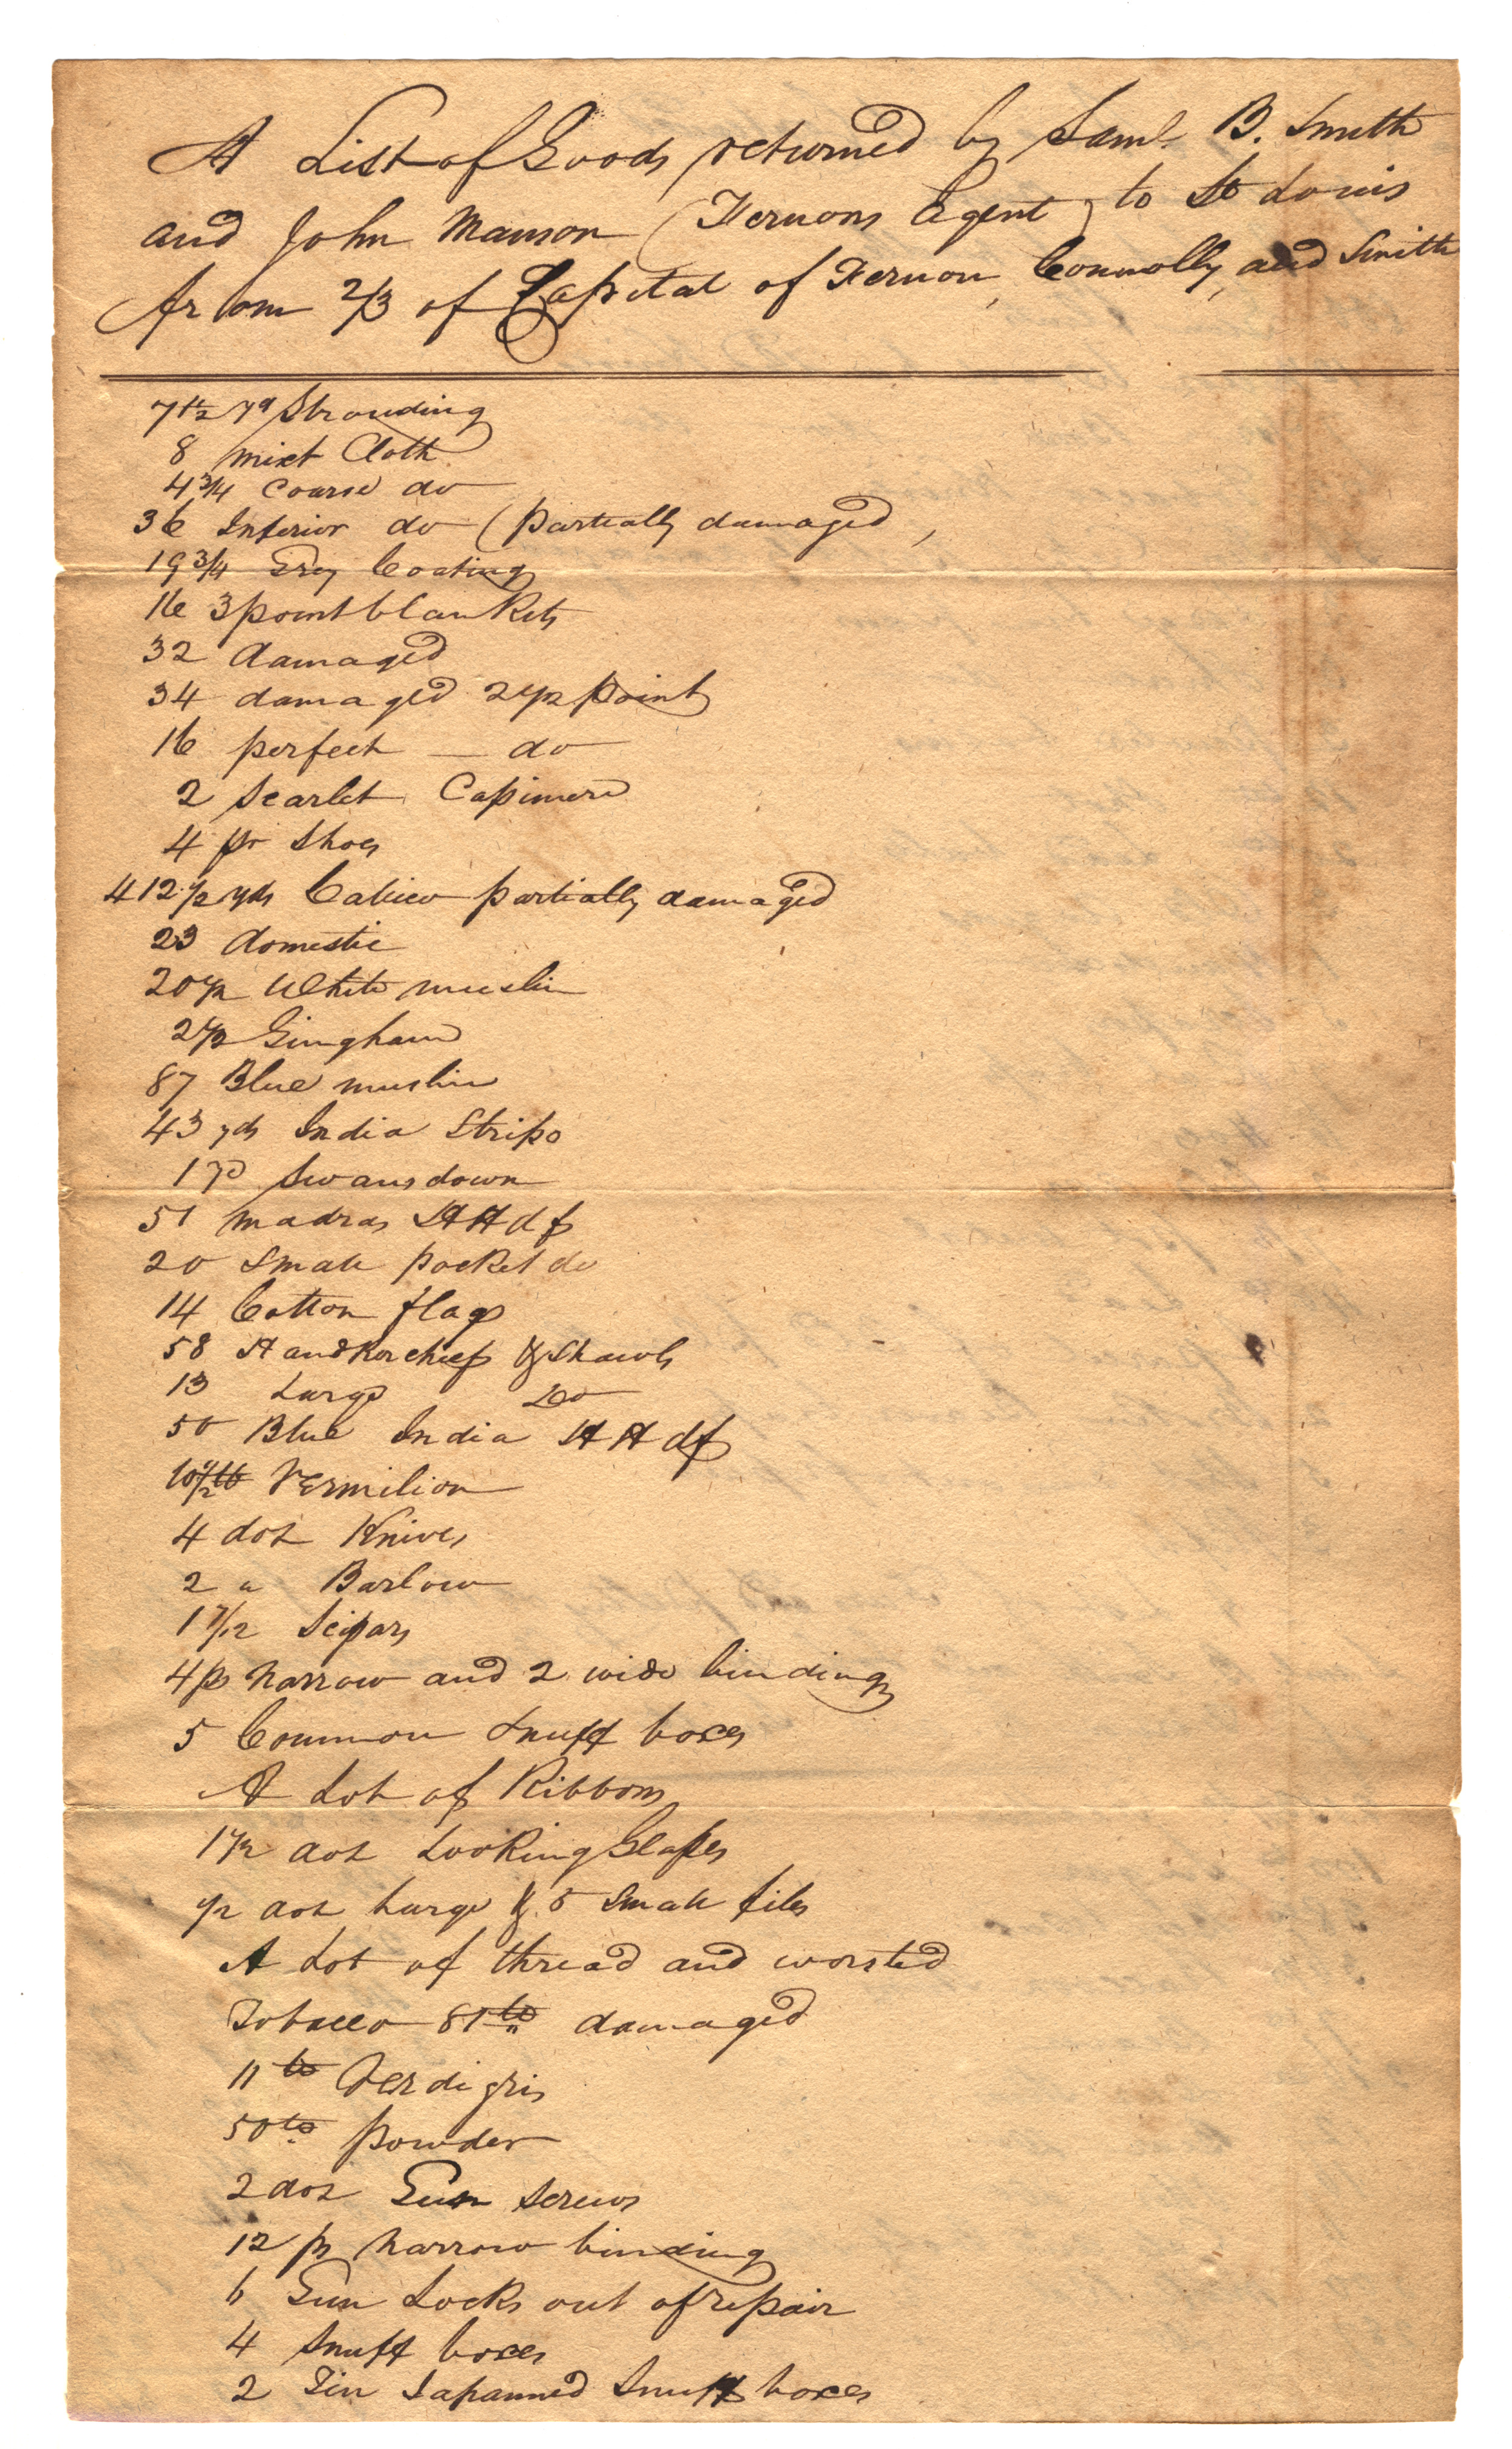 A List of Goods returned by Saml. B. Smith
and John Manson (Vernons Agent) to St Louis
from 2/3 of Capital of Vernon, Connolly, and Smith
7 1/2 yd Strouding
8 mixt Cloth
4 3/4 Coarse do
36 Inferior do (partially damaged,
19 3/4 Grey Coating
16 3 point blankets
32 damaged
34 damaged 2 1/2 point
16 perfect — do
2 Scarlet Cassimere
4 pr Shoes
412 1/2 yds Calico partially damaged
23 domestic
20 1/2 White muslin
2 1/2 Gingham
87 Blue muslin
43 yds India Stripe
1 yd Swansdown
51 madras HHdfs
20 Small pocket do
14 Cotton flags
58 Handkerchiefs & Shawls
13 Large Do
50 Blue India HHdfs
10 1/2 lb Vermilion
4 doz Knives
2 " Barlow
1 7/12 Scissars
4 ps narrow and 2 wide binding
5 Common Snuff boxes
A Lot of Ribbons
1 1/2 doz Looking Glasses
1/2 doz Large & 5 Small files
A Lot of thread and worsted
Tobacco 81 lb damaged
11 lb Verdigris
50 lb powder
2 doz Gun Screws
12 ps narrow binding
6 Gun Locks out of repair
4 Snuff boxes
2 Tin Japanned Snuff boxes